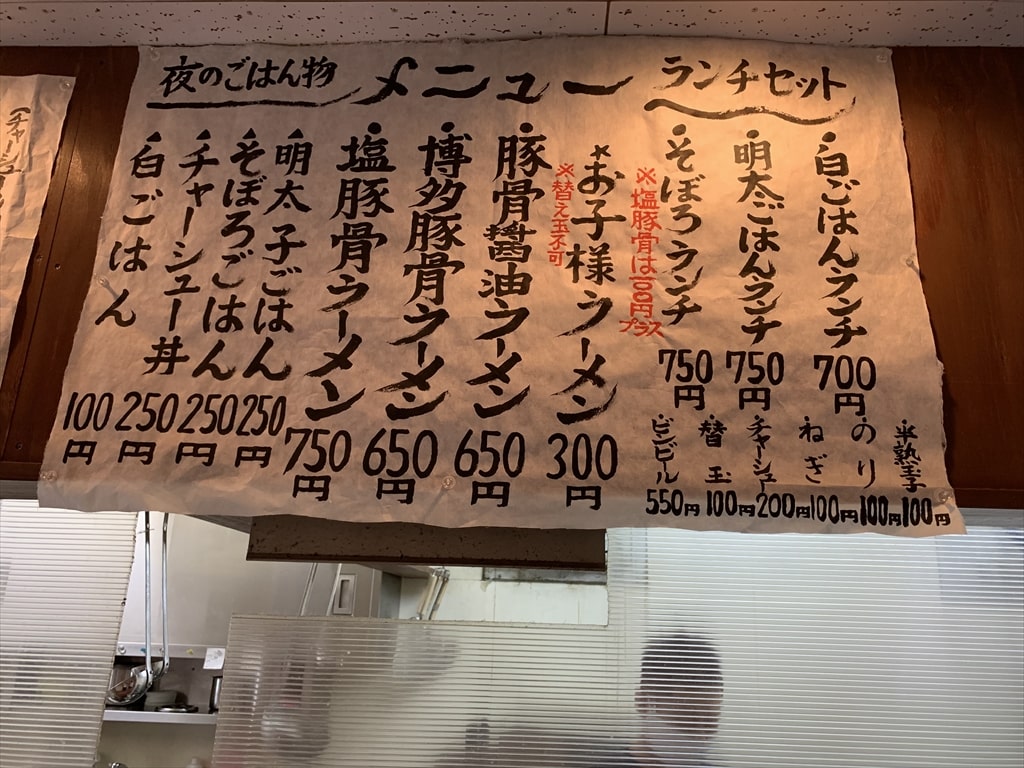 メニュー
ランチセット
・白ごはんランチ
700円
・明太ごはんランチ
750円
・そぼろランチ
750円
※塩豚骨は100円プラス
・お子様ラーメン
300円
※替え玉不可
・豚骨醤油ラーメン
650円
・博多豚骨ラーメン
650円
・塩豚骨ラーメン
750円
夜のごはん物
・明太子ごはん
250円
・そぼろごはん
250円
・チャーシュー丼
250円
・白ごはん
100円
・半熟玉子
100円
・のり
100円
・ねぎ
100円
・チャーシュー
200円
・替玉
100円
・ビンビール
550円